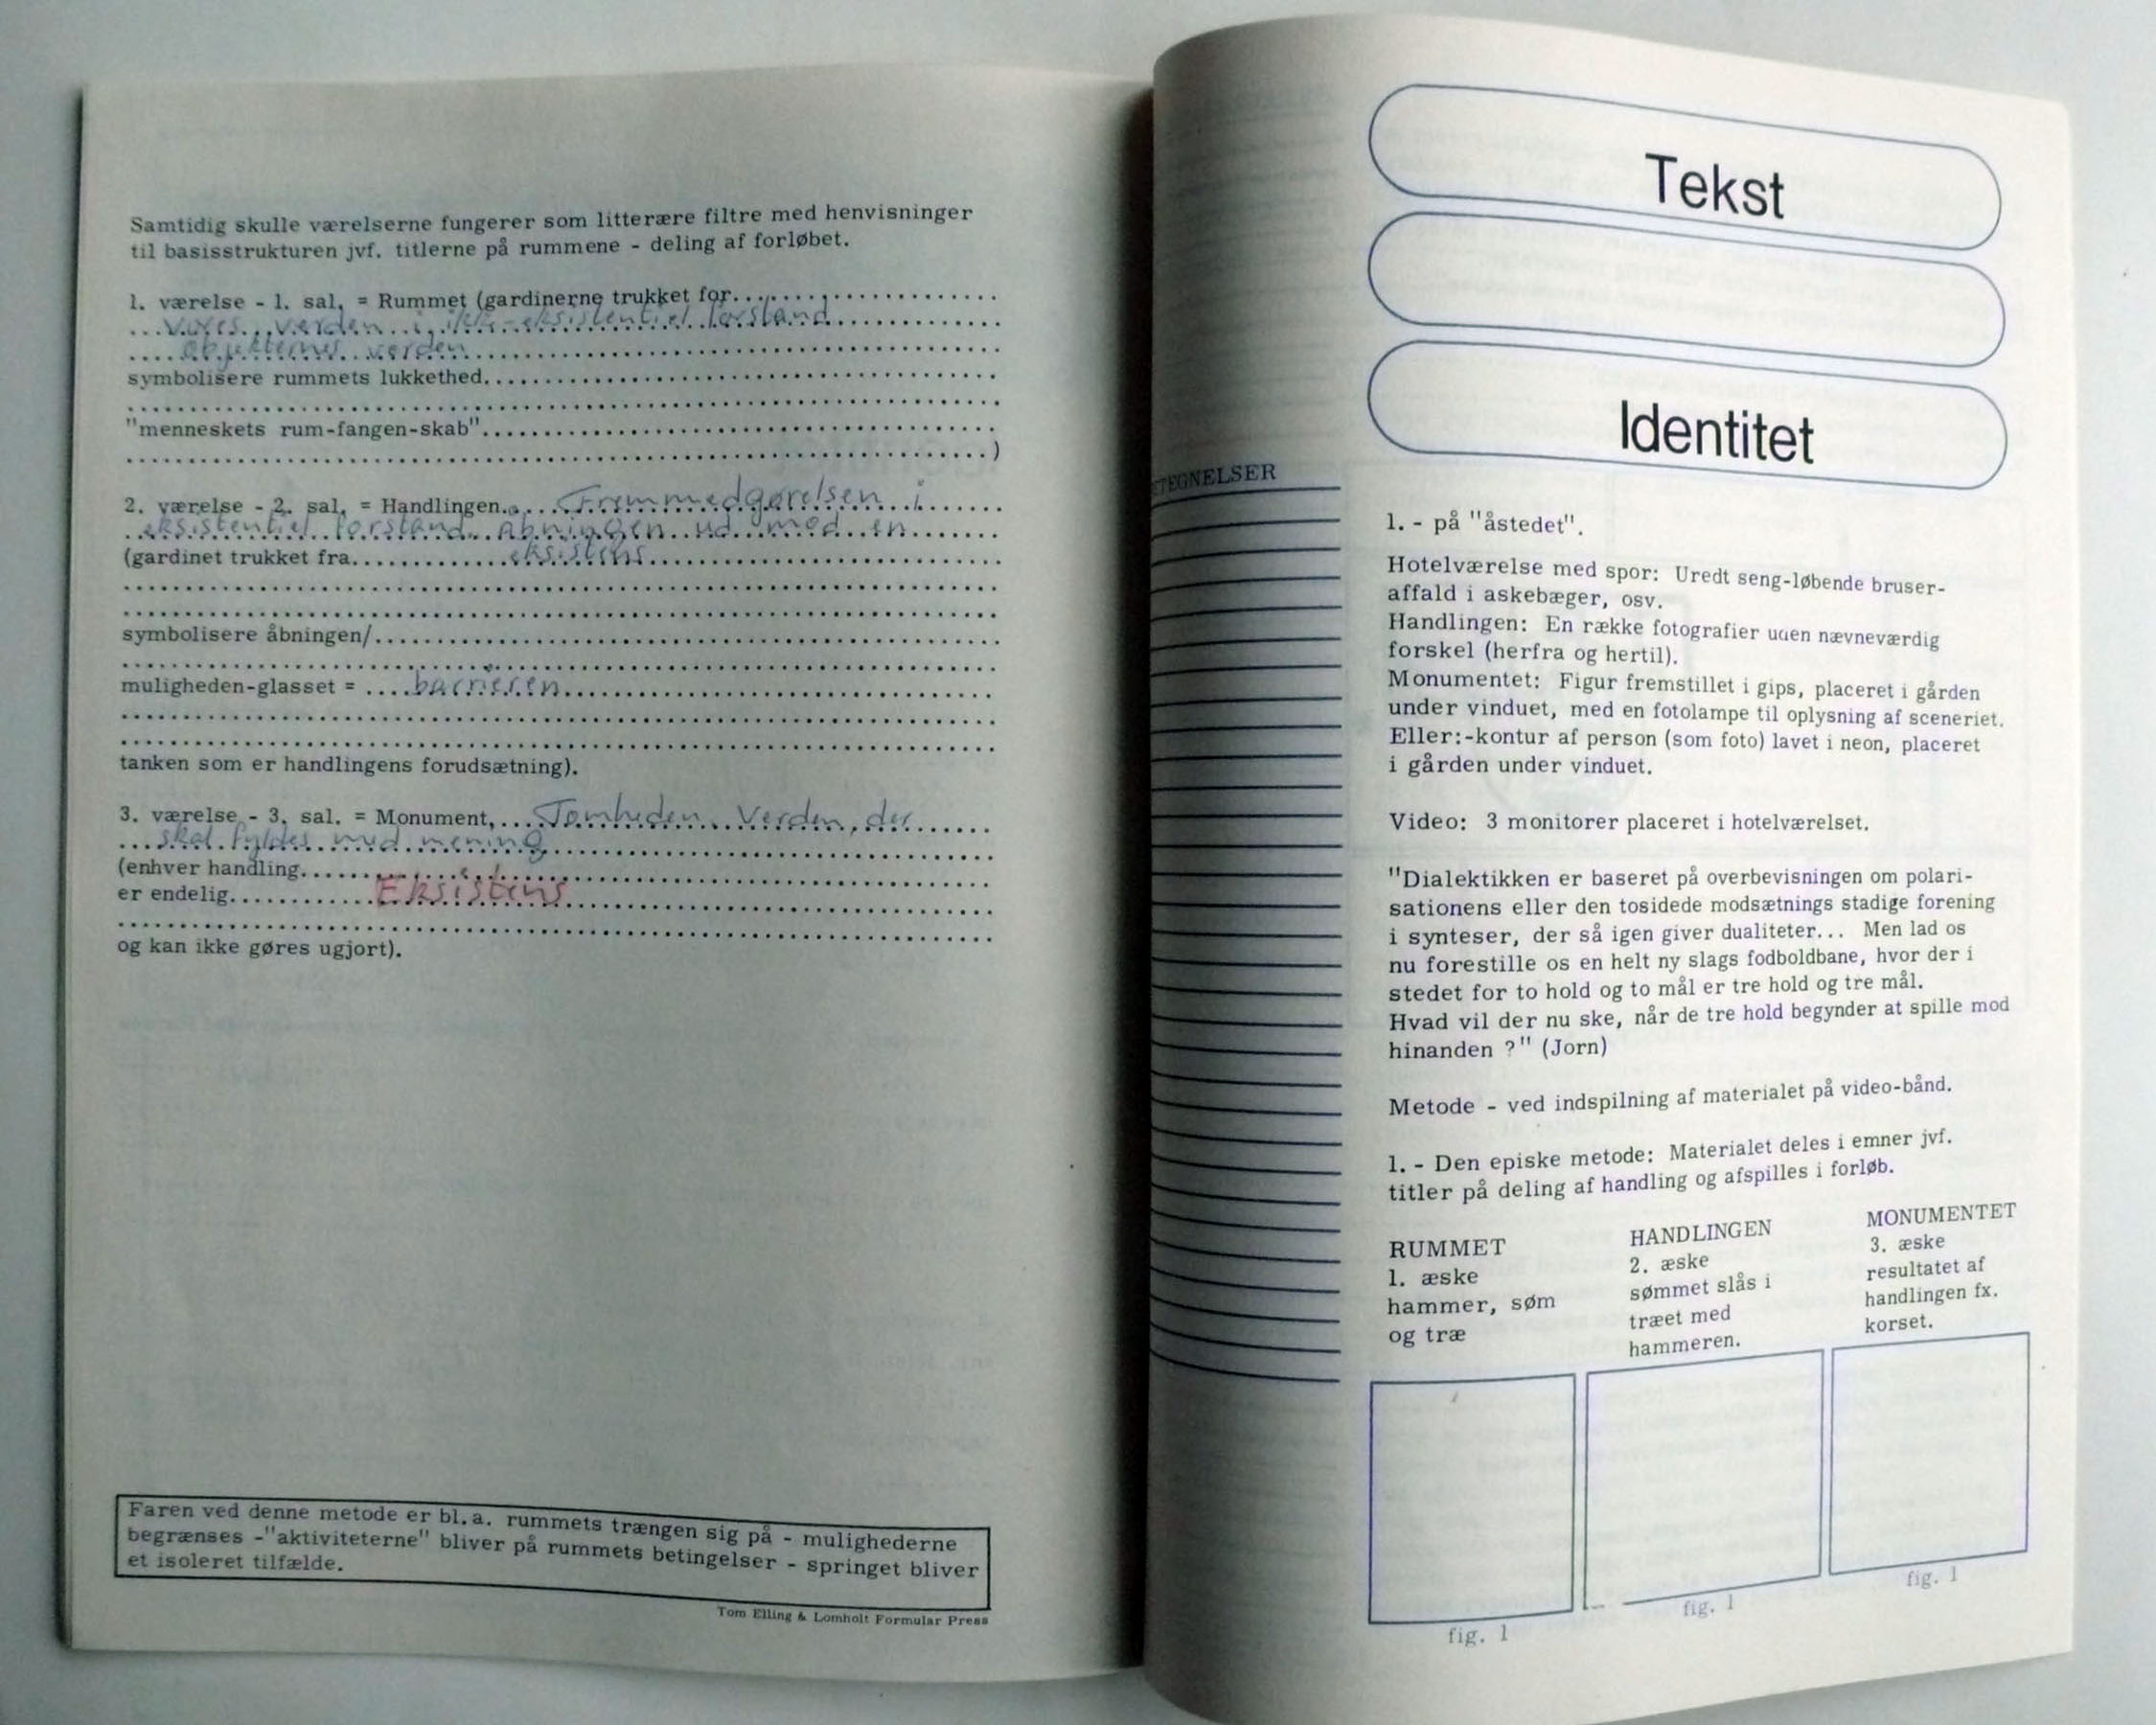 Samtidig skulle værelserne fungerer som litterære filtre med henvisninger
til basisstrukturen jvf. titlerne på rummene - deling af forløbet.
1. værelse - 1. sal, = Rummet (gardinerne trukket for..........................
...Vores verden i ikk-eksistentiel forstand..............
....objekternes verden..................................................
symbolisere rummets lukkethed.........................................
......................................................................
"menneskets rum-fangen-skab".........................................
......................................................................)
2. værelse - 2. sal. = Handlingen.....Fremmedgørelsen i.......
..eksistentiel forstand åbningen ud mod en.......
(gardinet trukket fra.............eksistens............................
......................................................................
......................................................................
symbolisere åbningen/..................................................
......................................................................
muligheden-glasset = ....barrieren..................................
......................................................................
......................................................................
tanken som er handlingens forudsætning).
3. værelse - 3. sal. = Monument,....Tomheden. Verden, der......
...skal fyldes med mening....................................
(enhver handling.......................................................
er endelig............Eksistens..................................
......................................................................
og kan ikke gøres ugjort).
Faren ved denne metode er bl.a. rummets trængen sig på - mulighederne
begrænses -"aktiviteterne" bliver på rummets betingelser - springet bliver
et isoleret tilfælde.
Tom Elling & Lomholt Formular Press
Tekst
Identitet
TEGNELSER
1. - på "åstedet".
Hotelværelse med spor: Uredt seng-løbende bruser-
affald i askebæger, osv.
Handlingen: En række fotografier uden nævneværdig
forskel (herfra og hertil).
Monumentet: Figur fremstillet i gips, placeret i gården
under vinduet, med en fotolampe til oplysning af sceneriet.
Eller:-kontur af person (som foto) lavet i neon, placeret
i gården under vinduet.
Video: 3 monitorer placeret i hotelværelset.
"Dialektikken er baseret på overbevisningen om polari-
sationens eller den tosidede modsætnings stadige forening
i synteser, der så igen giver dualiteter... Men lad os
nu forestille os en helt ny slags fodboldbane, hvor der i
stedet for to hold og to mål er tre hold og tre mål.
Hvad vil der nu ske, når de tre hold begynder at spille mod
hinanden ?" (Jorn)
Metode - ved indspilning af materialet på video-bånd.
1. - Den episke metode: Materialet deles i emner jvf.
titler på deling af handling og afspilles i forløb.
RUMMET
1. æske
hammer, søm
og træ
HANDLINGEN
2. æske
sømmet slås i
træet med
hammeren.
MONUMENTET
3. æske
resultatet af
handlingen fx.
korset.
fig. 1
fig. 1
fig. 1